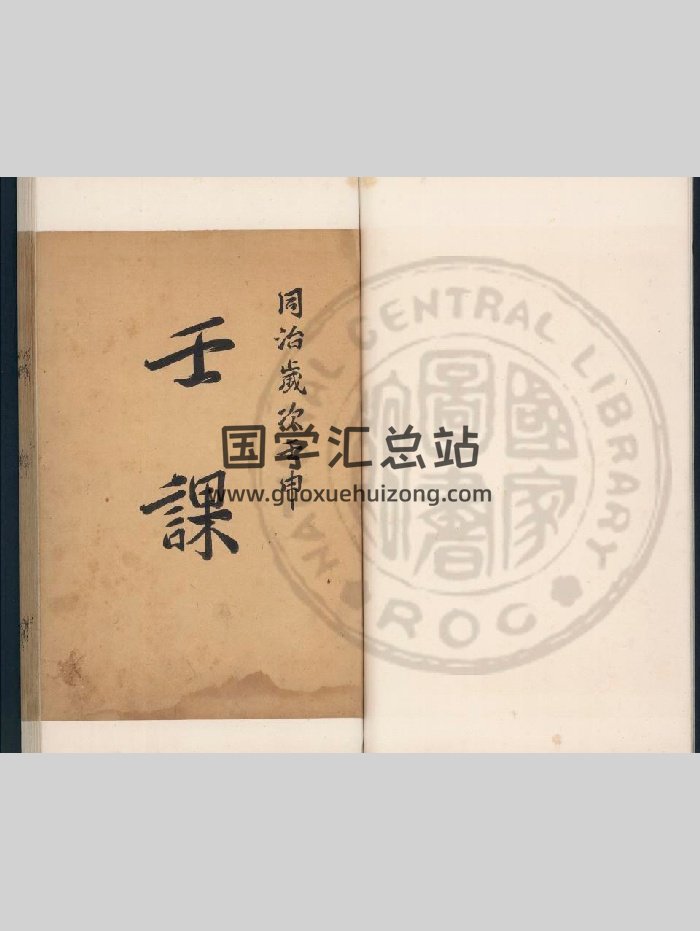 同治歲次壬申
壬課
国学汇总站
www.guoxuehuizong.com
NATIONAL CENTRAL LIBRARY
ROC
國家
圖書